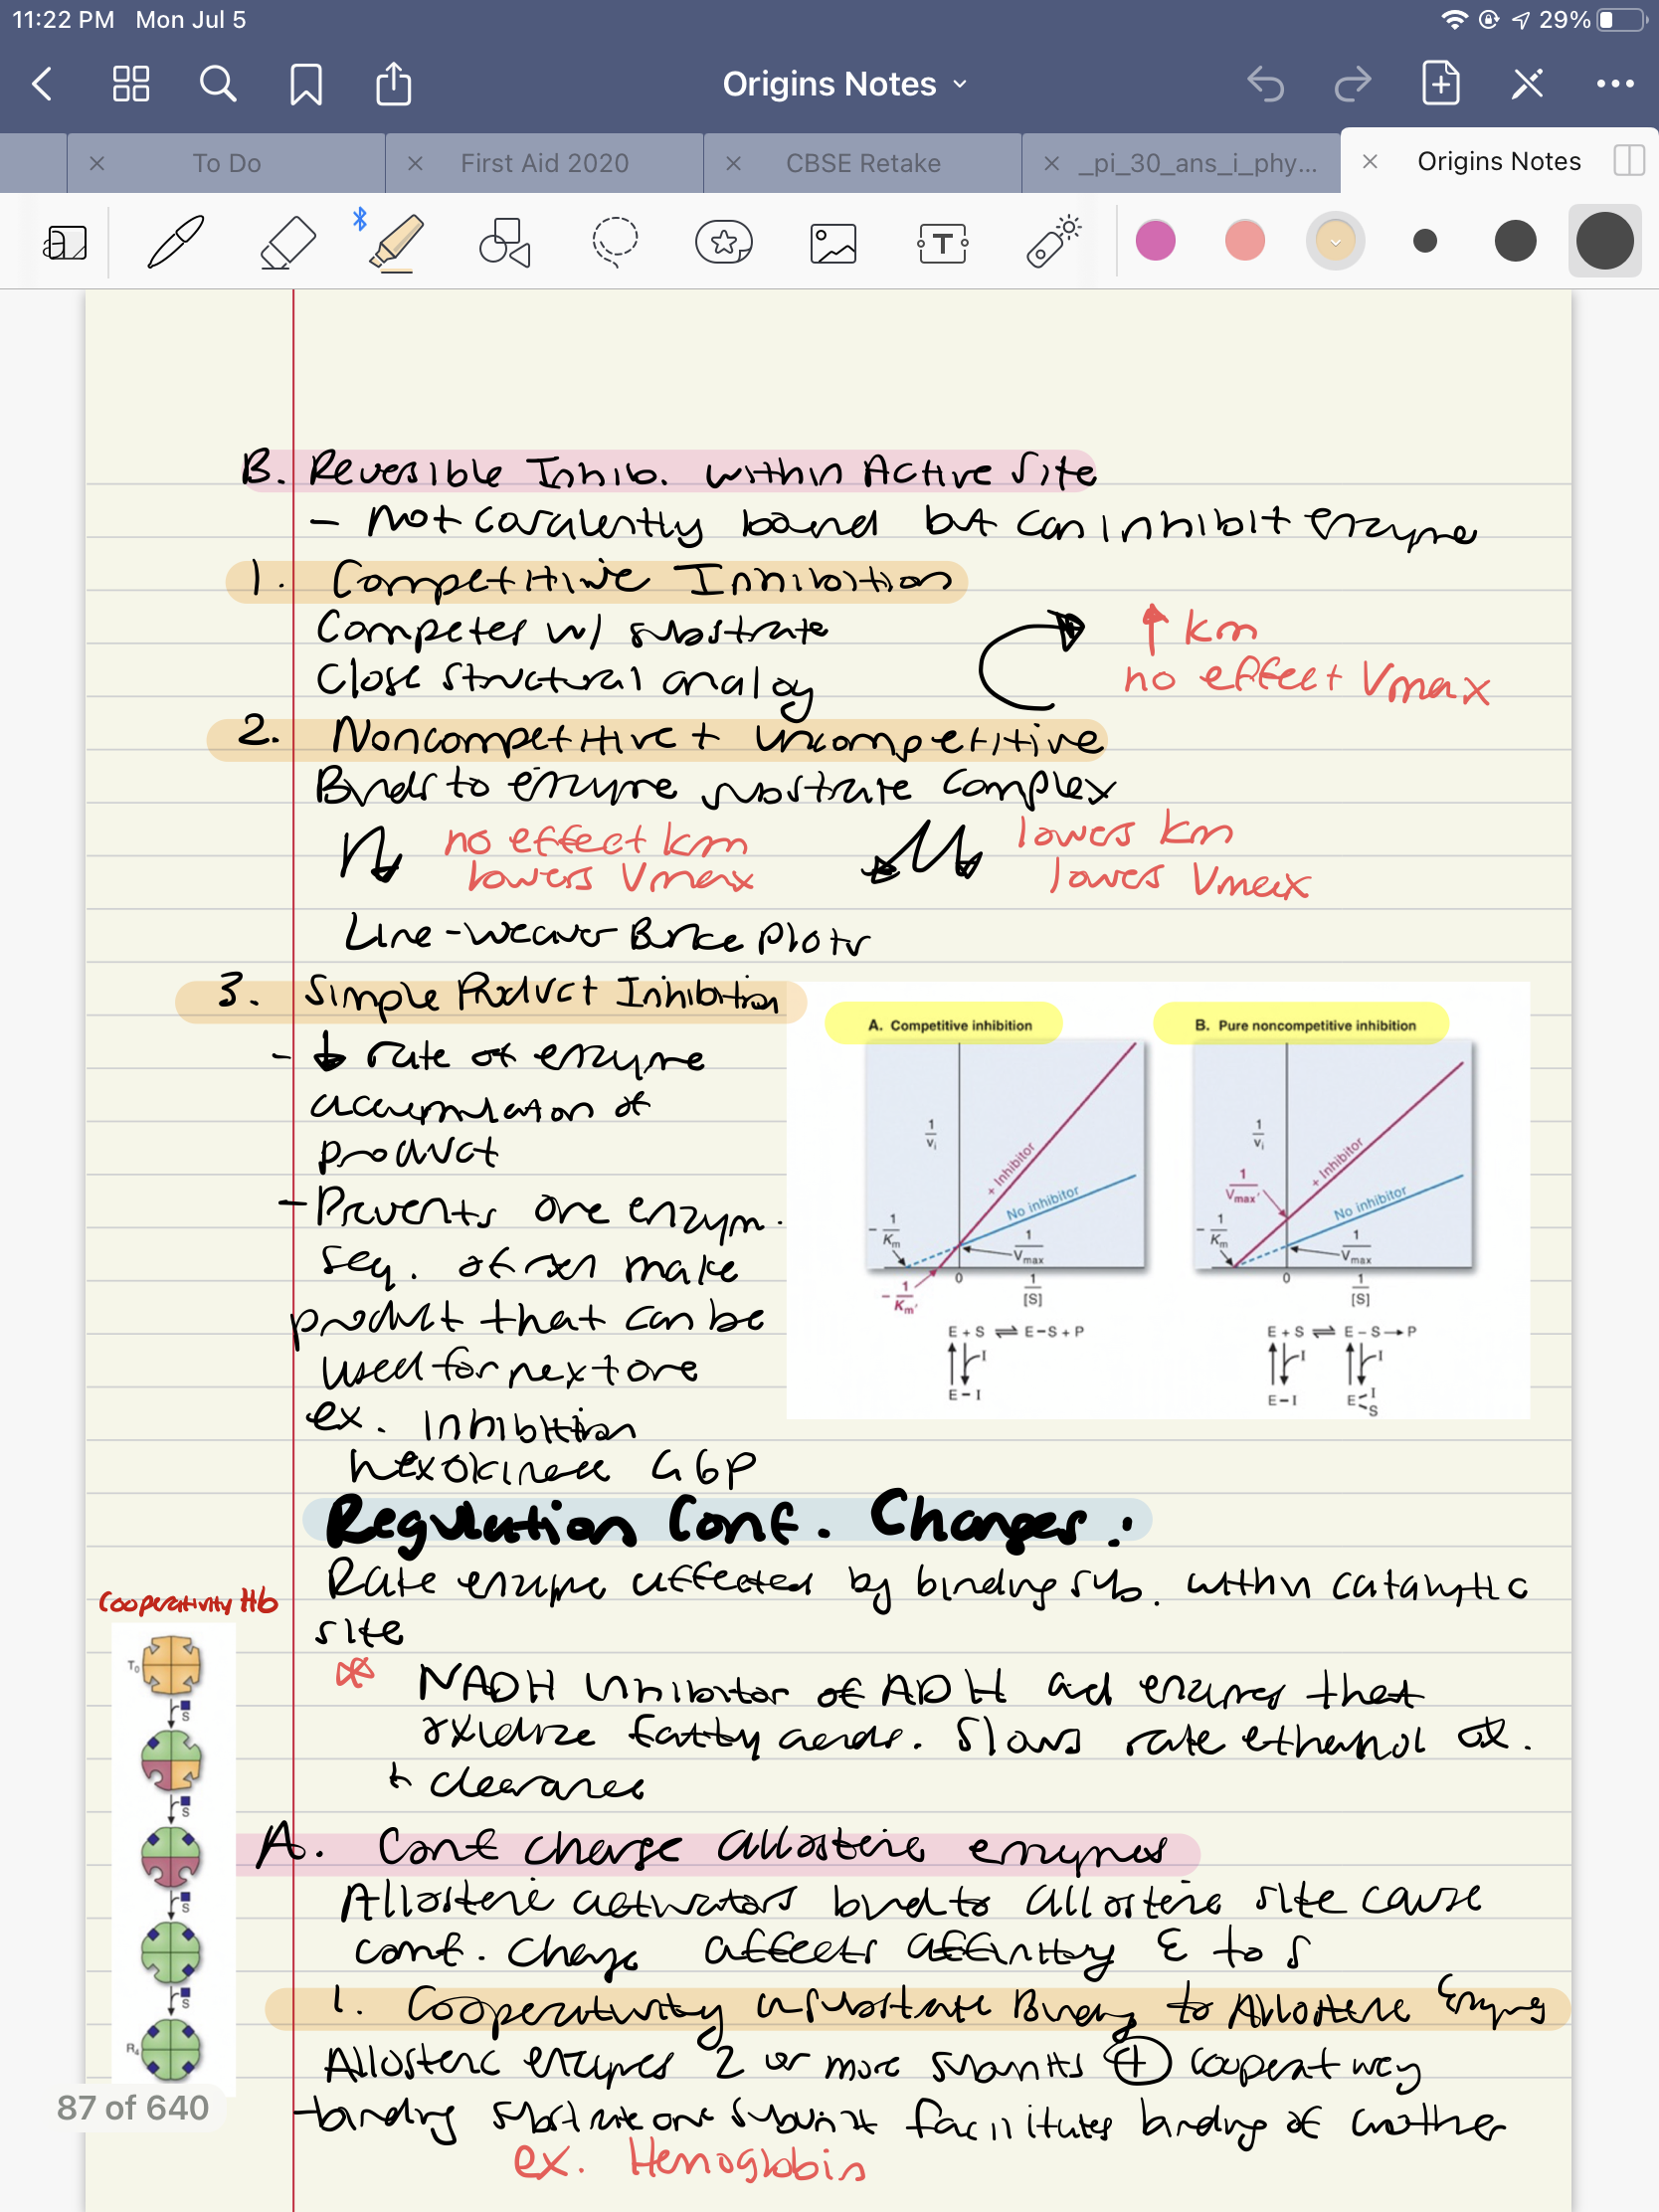 11:22 PM Mon Jul 5
29%
Origins Notes
To Do
First Aid 2020
CBSE Retake
_pi_30_ans_i_phy...
Origins Notes
B. Reversible Inhib. within Active Site
- not covalently bound but can inhibit enzyme
1. Competitive Inhibition
Competes w/ substrate
Close structural analog
↑ km
no effect Vmax
2. Noncompetitive + Uncompetitive
Binds to enzyme substrate complex
no effect km
lowers Vmax
lowers km
lowers Vmax
Line-weaver Burke Plots
3. Simple Product Inhibition
- ↓ rate of enzyme
accumulation of
product
- Prevents one enzym.
seq. of rxn make
product that can be
used for next one
ex. inhibition
hexokinase G6P
A. Competitive inhibition
1/vi
+ Inhibitor
No inhibitor
- 1/Km
1/Vmax
- 1/Km'
0
1/[S]
E + S ⇌ E-S + P
I
E-I
B. Pure noncompetitive inhibition
1/vi
+ Inhibitor
1/Vmax'
No inhibitor
- 1/Km
1/Vmax
0
1/[S]
E + S ⇌ E-S → P
I I
E-I E I S
Regulation Conf. Changes:
Rate enzyme affected by binding sub. within catalytic
site
NADH inhibitor of ADH and enzymes that
oxidize fatty acids. Slows rate ethanol ox.
+ clearance
Cooperativity Hb
T0
S
S
S
S
R4
A. Conf change allosteric enzymes
Allosteric activators bind to allosteric site cause
conf. change affects affinity E to S
1. Cooperativity in substrate Binding to Allosteric Enzymes
Allosteric enzymes 2 or more subunits + cooperatively
-binding substrate one subunit facilitates binding of another
ex. Hemoglobin
87 of 640